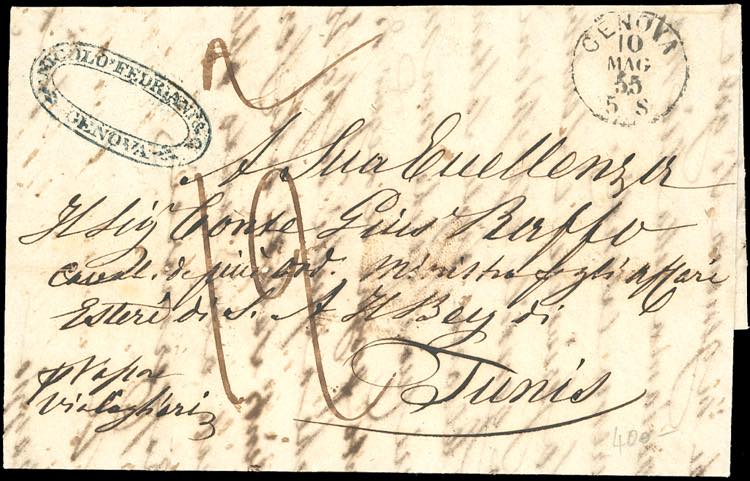 GENOVA
10
MAG
55
5 S
GENOVA
A Sua Eccellenza
Il Sigr Conte Gius Raffo
Caval. di più Ord. Ministro degli Affari
Esteri di S. A. Il Bey di
Tunis
p Vapor
Via Cagliari
400-